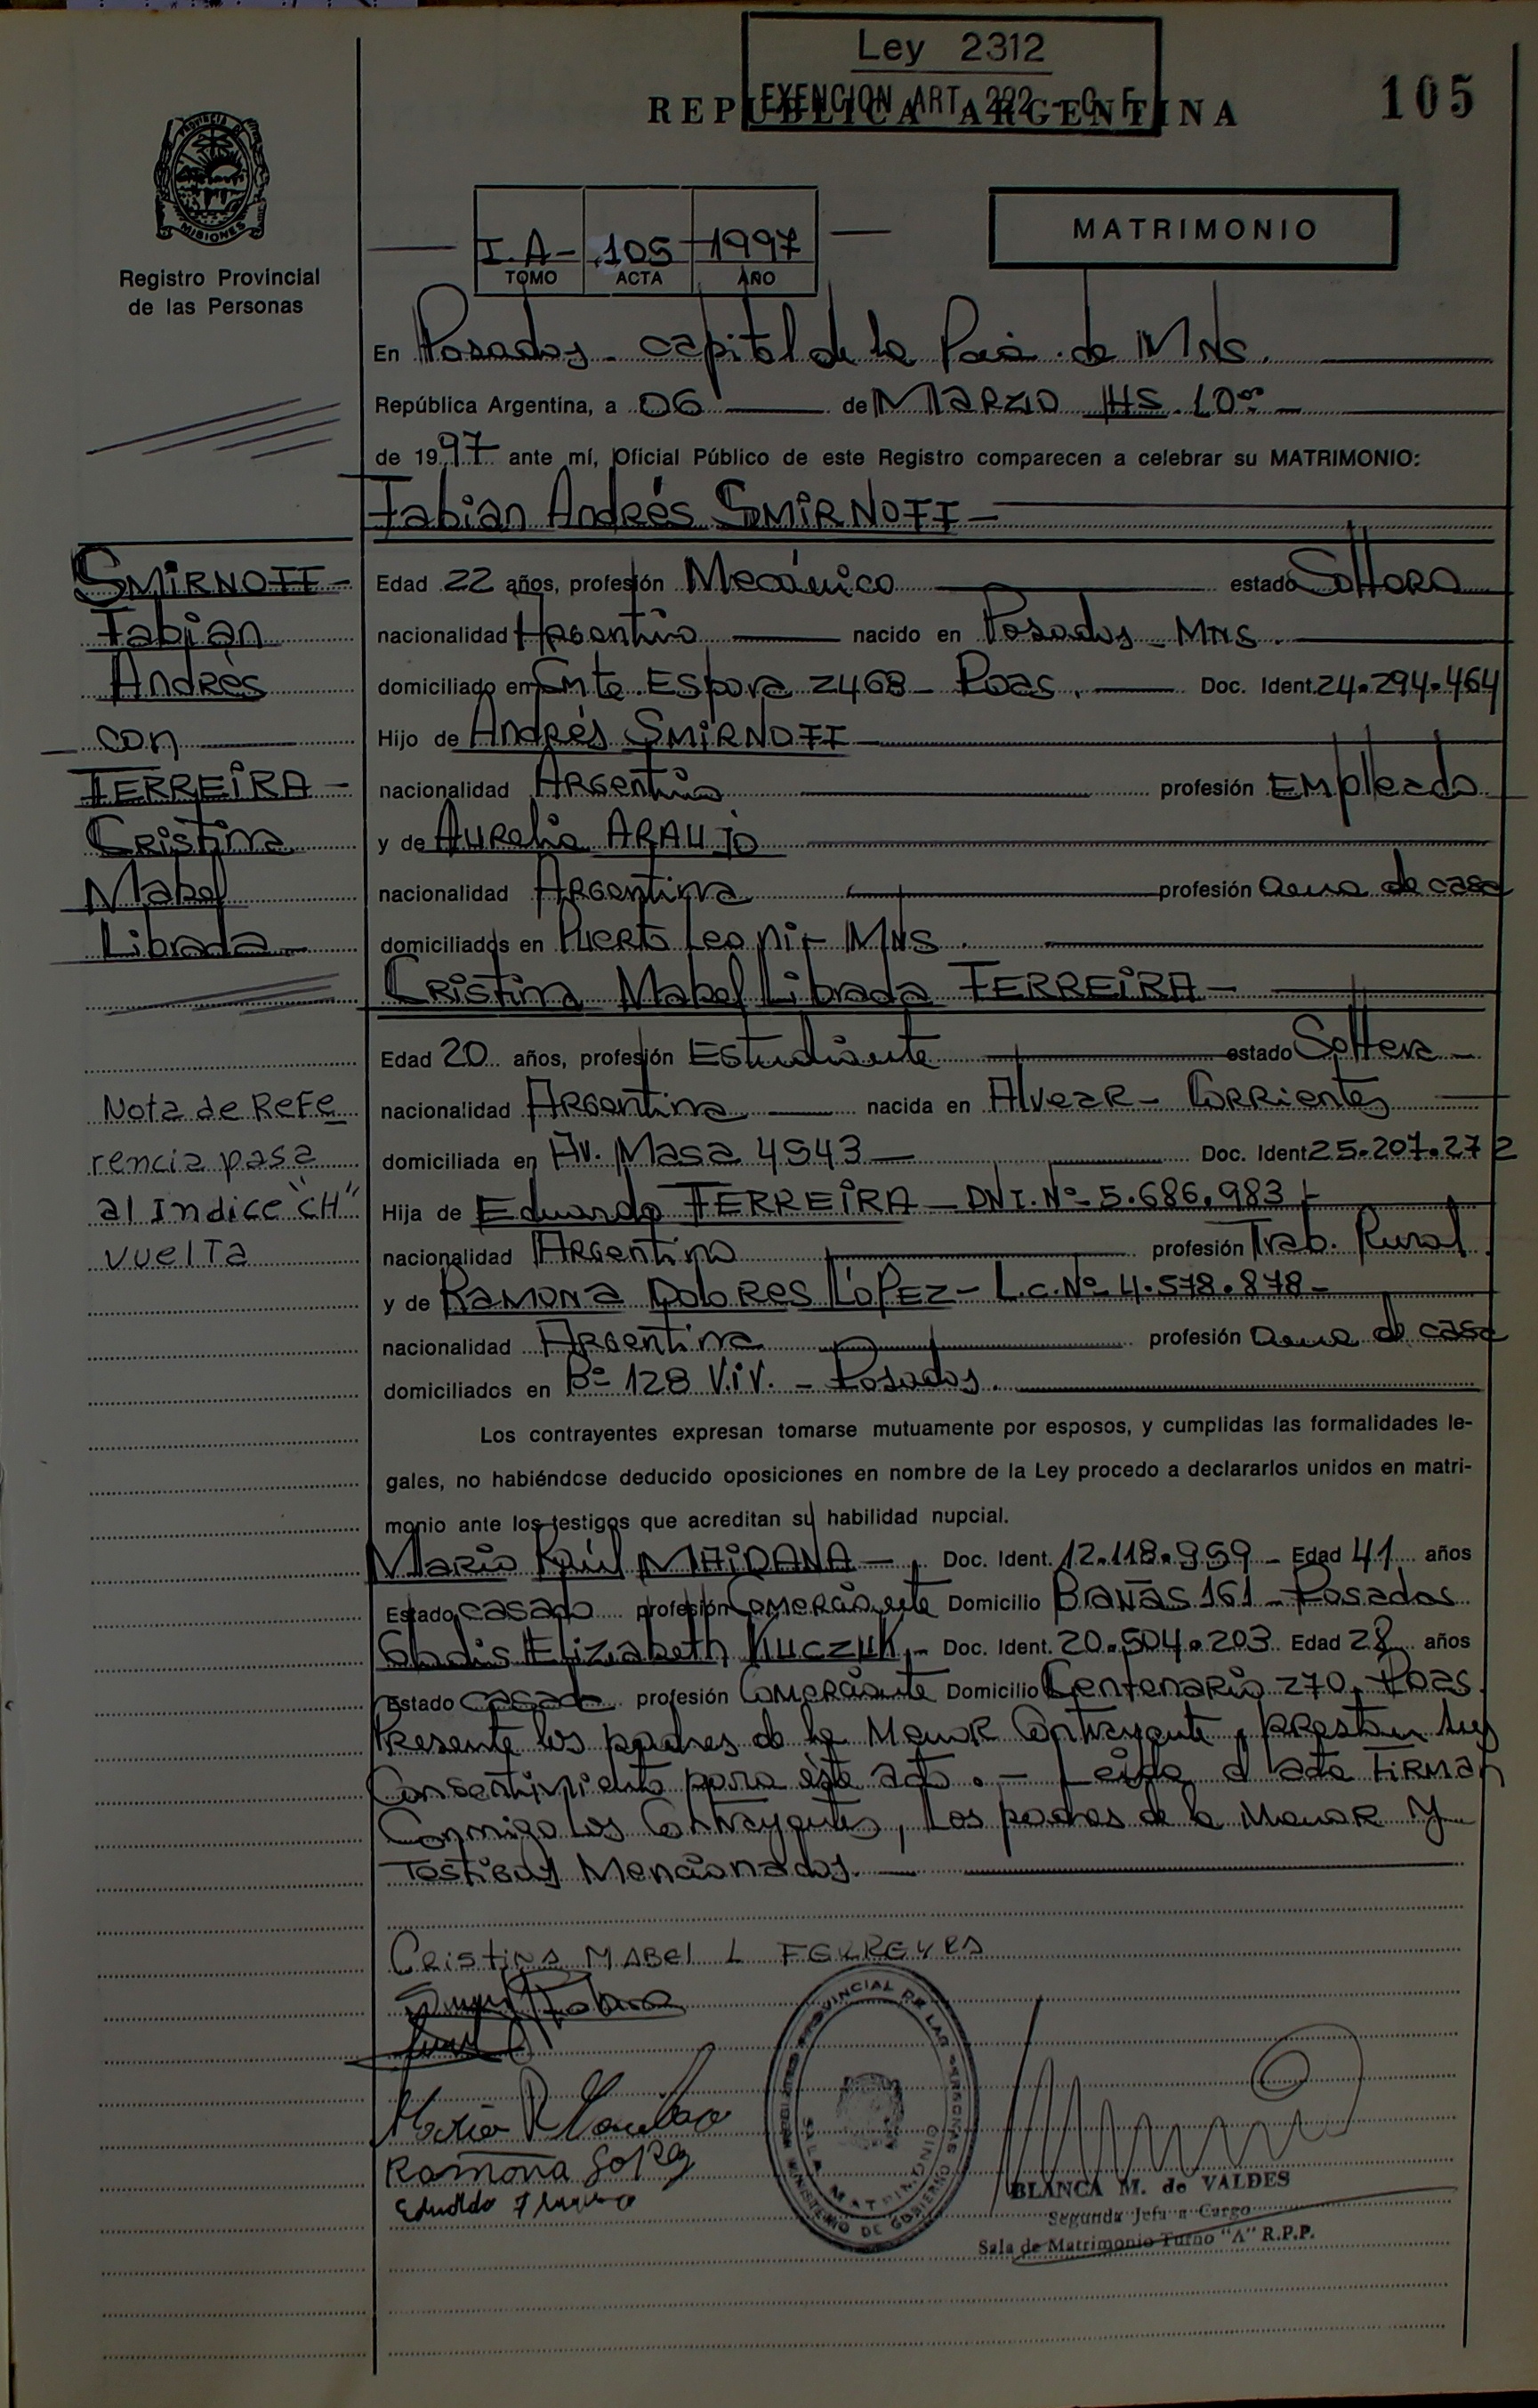 Ley 2312
EXENCION ART. 222 - C. F.
REPUBLICA ARGENTINA
105
PROVINCIA DE
MISIONES
Registro Provincial
de las Personas
I.A- 105 1997
TOMO ACTA AÑO
MATRIMONIO
En Posadas - Capital de la Pcia. de MNS.
República Argentina, a 06 de MARZO HS. 10°°
de 1997 ante mí, Oficial Público de este Registro comparecen a celebrar su MATRIMONIO:
Fabian Andrés SMIRNOFF
Edad 22 años, profesión Mecánico estado Soltero
nacionalidad Argentino nacido en Posadas - MNS.
domiciliado en Cnte. Espora 2468 - Pdas. Doc. Ident. 24.294.464
Hijo de Andrés SMIRNOFF
nacionalidad Argentino profesión Empleado
y de Aurelia ARAUJO
nacionalidad Argentina profesión ama de casa
domiciliados en Puerto Leoni - MNS.
Cristina Mabel Librada FERREIRA
Edad 20 años, profesión Estudiante estado Soltera
nacionalidad Argentina nacida en Alvear - Corrientes
domiciliada en Av. Masa 4943 Doc. Ident. 25.207.272
Hija de Eduardo FERREIRA - DNI. Nº 5.686.983
nacionalidad Argentino profesión Trab. Rural.
y de Ramona Dolores LÓPEZ - L.C. Nº 4.578.878
nacionalidad Argentina profesión ama de casa
domiciliados en Bº 128 Viv. - Posadas.
SMIRNOFF
Fabian
Andrés
con
FERREIRA
Cristina
Mabel
Librada
Nota de Refe
rencia pasa
al Indice "CH"
vuelta
Los contrayentes expresan tomarse mutuamente por esposos, y cumplidas las formalidades le-
gales, no habiéndose deducido oposiciones en nombre de la Ley procedo a declararlos unidos en matri-
monio ante los testigos que acreditan su habilidad nupcial.
Mario Raúl MAIDANA Doc. Ident. 12.118.959 Edad 41 años
Estado casado profesión Comerciante Domicilio Brañas 161 - Posadas
Gladis Elizabeth KUCZUK Doc. Ident. 20.504.203 Edad 28 años
Estado casada profesión Comerciante Domicilio Centenario 270. Pdas.
Presente los padres de la Menor Contrayente, prestan su
Consentimiento para este acto. - Leida el acta FIRMAN
Conmigo los Contrayentes, los padres de la Menor y
Testigos Mencionados.
Cristina MABEL L FERREYRA
Ramona Lopez
REGISTRO PROVINCIAL DE LAS PERSONAS
SALA MATRIMONIO
MINISTERIO DE GOBIERNO
BLANCA M. de VALDES
Segunda Jefa a Cargo
Sala de Matrimonio Turno "A" R.P.P.